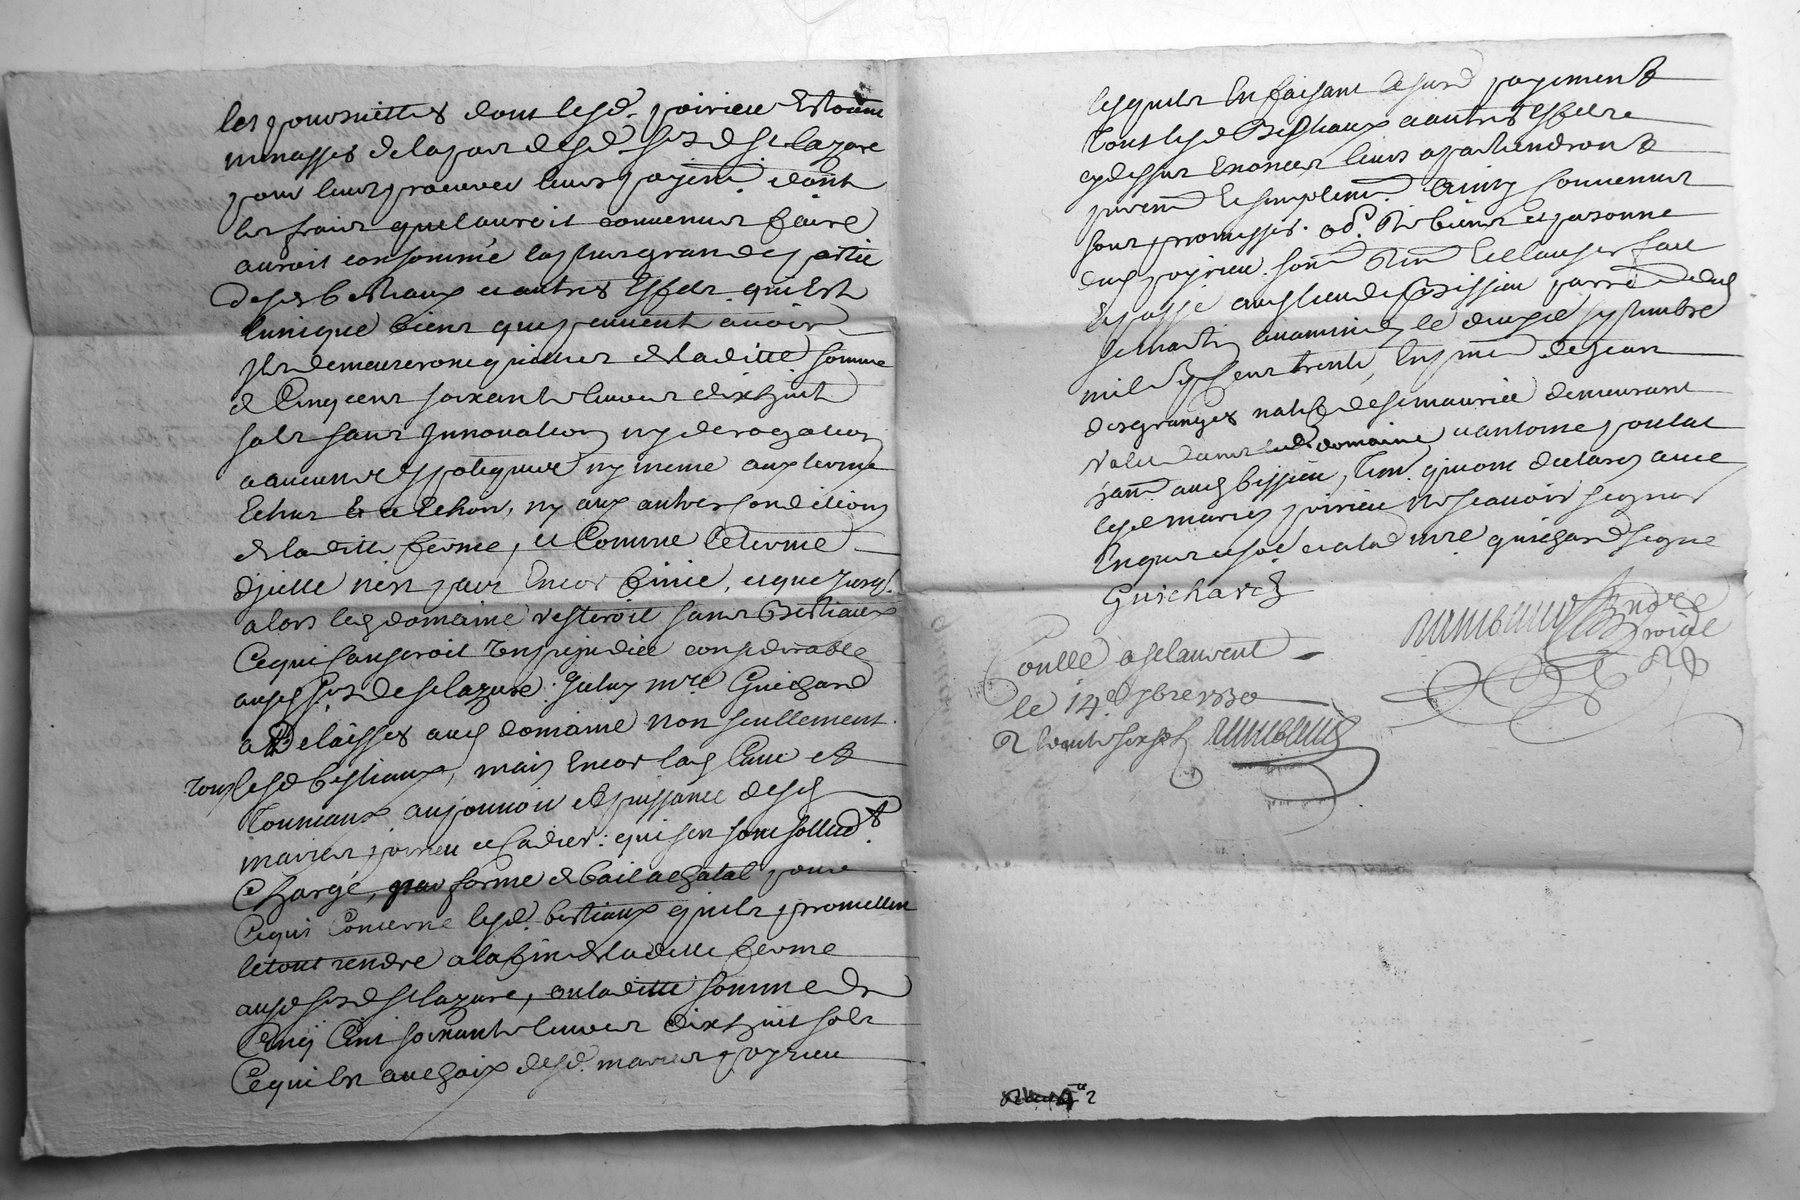 les poursuittes dont lesd. poirieu estoient
menasses de la part desd. srs de st lazare
pour leur procurer leurs payemt. dont
les frais quil auroit convenus faire
auroit consommé la plus grande partie
desd bestiaux et autres effets qui est
lunique biens quils peuvent avoir
ils demeureront quittes de laditte somme
de Cinq cent soixante livres dixhuit
sols sans Innovation ny derogation
a aucunes ypoteques ny meme aux termes
Echus et a Echoir, ny aux autres conditions
de laditte ferme, et Comme le terme
dicelle nest pas Encor finie, et que jusqs.
alors led domaine resteroit sans Bestiaux
Ce qui causeroit un prejudice considerable
ausd srs de st lazare. Iceluy mre Guichard
a Delaisses aud domaine non seullement
tous lesd bestiaux, mais Encor lad Cuve et
Tonneaux au pouvoir et puissance desd
maries poirieu et : qui sen sont sollidt.
Chargé, par forme de bail a chatal pour
Ce qui Concerne lesd. bestiaux quils promettent
le tout rendre a la fin de laditte ferme
ausd srs de st lazare, ou laditte somme de
Cinq Cent soixante livres dixhuit sols
Ce qui est au choix desd. maries poyrieu
lesquels En faisant le susd payement
Tout lesd Bestiaux et autres Effets
cy dessus Enoncer leurs apartiendront
purent et simplemt. Ainsy convenus
sous promesses. obd. de biens et personne
dud poyrieu. soumn. Renn. et clauses fait
et passé aud lieu de Bissieu parroisse dud
st martin avant midy le douze septembre
mil sept cent trente, En pnce de jean
desgranges natif de st maurice demeurant
valet dans led. domaine et antoine poulat
jard. aud bissieu, Tem. qui ont declarés avec
lesd maries poirieu ne scavoir signer
Enquis et sod. et a led mre guichard signe
Guichard
rambaud Nore
Royal
Conllé a st laurent
le 14e 7bre 1730
R trente six s rambaud
2